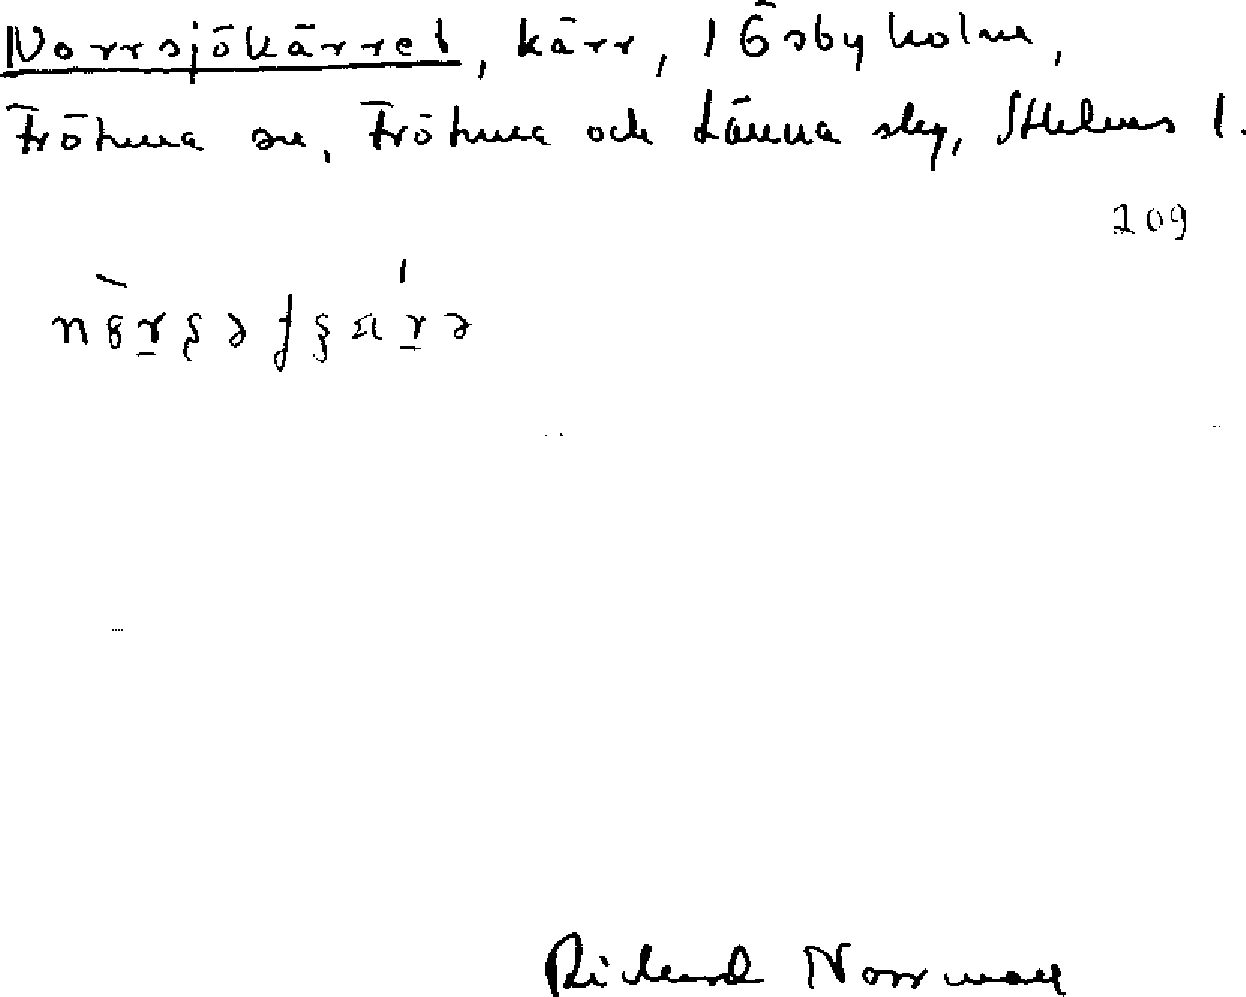 Norrsjökärret, kärr, 1 Ösbyholm,
Frötuna sn, Frötuna och Länna skg, Sthlms l.
209
Richard Norrman